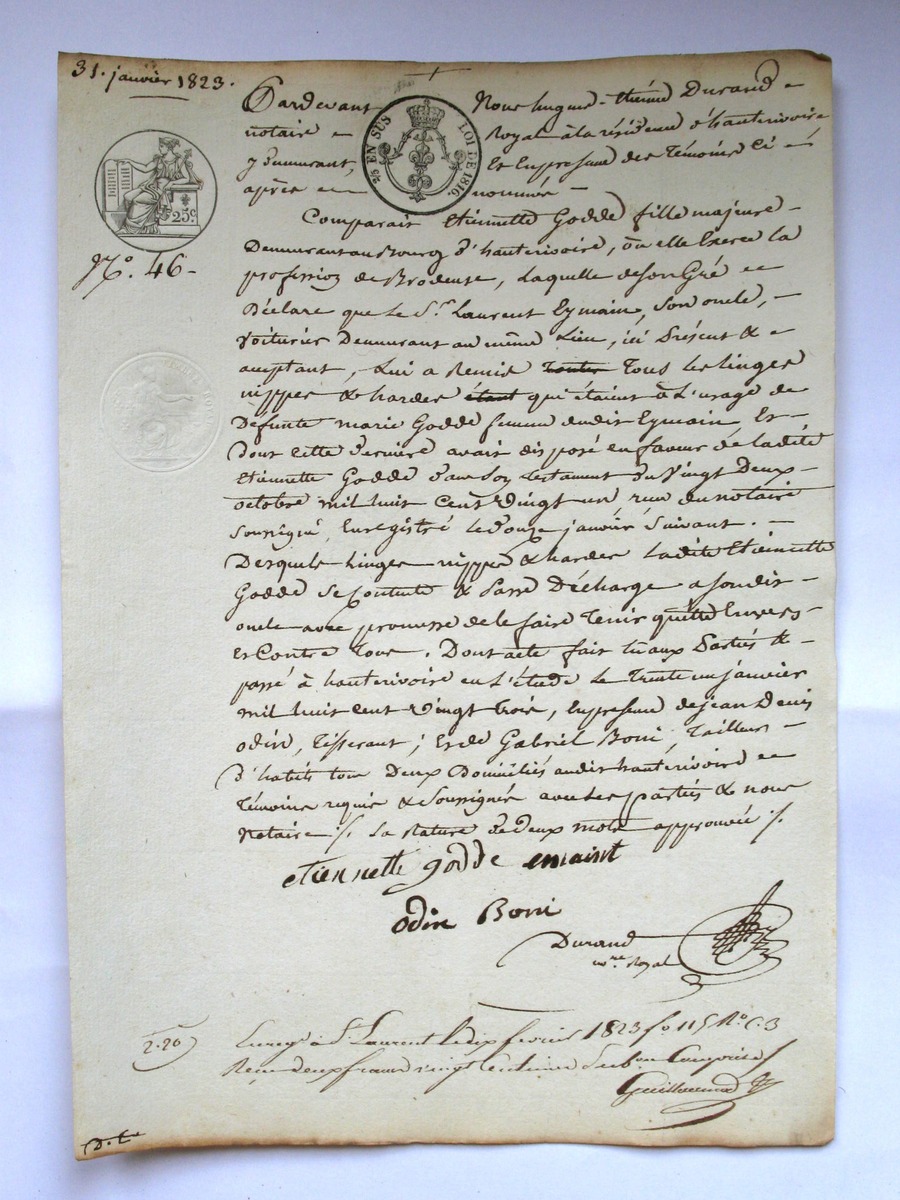 31. janvier 1823.
Pardevant Nous hugues-étiénne Durand
notaire Royal à la résidence d'hauterivoire
y demeurant, Et En présence des témoins Ci
après nommés
2/5 EN SUS LOI DE 1816.
25c.
N.o 46
Comparait Etiennette Godde fille majeure
Demeurant au Bourg d'hauterivoire, où elle Exerce la
profession de Brodeuse, Laquelle de son Gré
Déclare que le S.r Laurent Eymain, son oncle,
Voiturier Demeurant au même Lieu, ici présent &
acceptant, Lui a Remis toutes Tous les linges
nippes & hardes étant qui étaient à L'usage de
Défunte marie Godde femme dudit Eymain, Et
dont cette dernière avait disposé en faveur de ladite
Etiennette Godde dans son testament du Vingt Deux
octobre mil huit Cent Vingt un reçu du notaire
soussigné, Enregistré le Douze janvier Suivant.
Desquels Linges nippes & hardes Ladite Etiennette
Godde se Contente & passe Décharge a son dit
oncle avec promesse de le faire Tenir quitte Envers
Et Contre Tous. Dont acte fait lu aux parties &
passé à hauterivoire en L'étude Le Trente un janvier
mil huit cent Vingt trois, En présence de jean Denis
odin, Tisserant; Et de Gabriel Boni, Tailleur
d'habits tous Deux Domiciliés audit hauterivoire
Témoins requis & soussignés avec les parties & nous
Notaire ./. la rature de deux mots approuvée ./.
etiennette godde emaint
odin Boni
Durand
n.re Royal
2.20
Enregé à St Laurent le dix fevrier 1823 fo 115 Ro C. 3
Reçu deux francs vingt centimes subon Compris
Guillermond
D. L